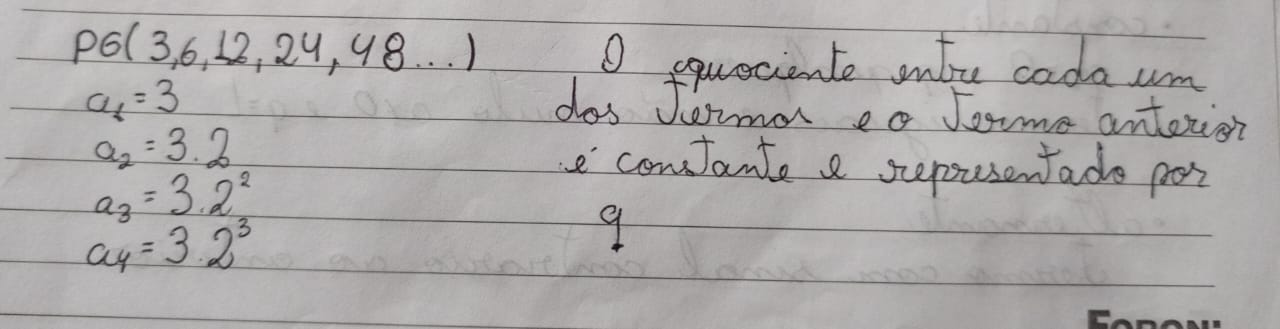 PG(3,6,12,24,48...)
a₁=3
a₂=3.2
a₃=3.2²
a₄=3.2³
O quociente entre cada um
dos termos e o termo anterior
é constante e representado por
q
FORONI